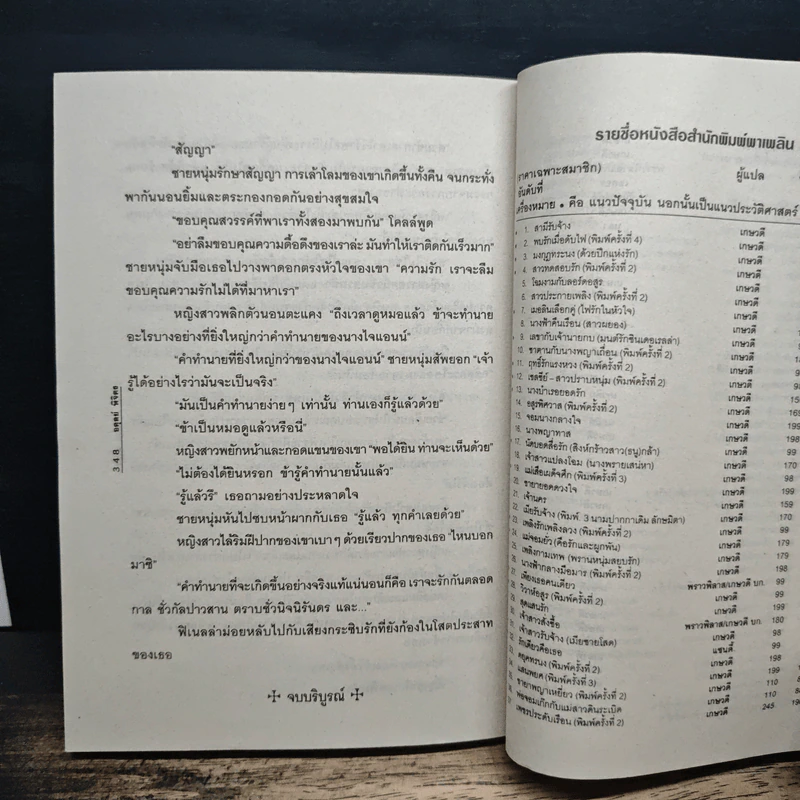 "สัญญา"
ชายหนุ่มรักษาสัญญา การเล้าโลมของเขาเกิดขึ้นทั้งคืน จนกระทั่ง
พากันนอนยิ้มและตระกองกอดกันอย่างสุขสมใจ
"ขอบคุณสวรรค์ที่พาเราทั้งสองมาพบกัน" โคลล์พูด
"อย่าลืมขอบคุณความดื้อดึงของเราล่ะ มันทำให้เราติดกันเร็วมาก"
ชายหนุ่มจับมือเธอไปวางพาดอกตรงหัวใจของเขา "ความรัก เราจะลืม
ขอบคุณความรักไม่ได้ที่มาหาเรา"
หญิงสาวพลิกตัวนอนตะแคง "ถึงเวลาดูหมอแล้ว ข้าจะทำนาย
อะไรบางอย่างที่ยิ่งใหญ่กว่าคำทำนายของนางไจแอนน์"
"คำทำนายที่ยิ่งใหญ่กว่าของนางไจแอนน์" ชายหนุ่มสัพยอก "เจ้า
รู้ได้อย่างไรว่ามันจะเป็นจริง"
"มันเป็นคำทำนายง่ายๆ เท่านั้น ท่านเองก็รู้แล้วด้วย"
"ข้าเป็นหมอดูแล้วหรือนี่"
หญิงสาวพยักหน้าและกอดแขนของเขา "พอได้ยิน ท่านจะเห็นด้วย"
"ไม่ต้องได้ยินหรอก ข้ารู้คำทำนายนั้นแล้ว"
"รู้แล้วรึ" เธอถามอย่างประหลาดใจ
ชายหนุ่มหันไปซบหน้าผากกับเธอ "รู้แล้ว ทุกคำเลยด้วย"
หญิงสาวไล้ริมฝีปากของเขาเบาๆ ด้วยเรียวปากของเธอ "ไหนบอก
มาซิ"
"คำทำนายที่จะเกิดขึ้นอย่างจริงแท้แน่นอนก็คือ เราจะรักกันตลอด
กาล ชั่วกัลปาวสาน ตราบชั่วนิจนิรันดร และ..."
ฟิเนลล่าม่อยหลับไปกับเสียงกระซิบรักที่ยังก้องในโสตประสาท
ของเธอ
จบบริบูรณ์
348
รายชื่อหนังสือสำนักพิมพ์พาเพลิน
ราคาเฉพาะสมาชิก)
อันดับที่ ผู้แปล
เครื่องหมาย • คือ แนวปัจจุบัน นอกนั้นเป็นแนวประวัติศาสตร์
1. สามีรับจ้าง เกษวดี
2. พบรักเมื่อดับไฟ (พิมพ์ครั้งที่ 4) เกษวดี
3. มงกุฎทระนง (ด้วยปีกแห่งรัก) เกษวดี
4. สาวทดสอบรัก (พิมพ์ครั้งที่ 2) เกษวดี
5. โฉมงามกับลอร์ดอสูร เกษวดี
6. สาวประกายเพลิง (พิมพ์ครั้งที่ 2) เกษวดี
7. เมอลินเลือกคู่ (ไฟรักในหัวใจ) เกษวดี
8. นางฟ้าคืนเรือน (สาวผยอง) เกษวดี
9. เลขากับเจ้านายกบ (มนต์รักซินเดอเรลล่า) เกษวดี
10. ซาตานกับนางพญาเถื่อน (พิมพ์ครั้งที่ 2) เกษวดี
11. ฤทธิ์รักแรงหวง (พิมพ์ครั้งที่ 2) เกษวดี
12. เชลซีย์ - สาวปราบหนุ่ม (พิมพ์ครั้งที่ 2) เกษวดี
13. นางบำเรอยอดรัก เกษวดี
14. อสูรพิศวาส (พิมพ์ครั้งที่ 2) เกษวดี
15. จอมนางกลางใจ เกษวดี
16. นางพญาทาส เกษวดี
17. นัดบอดสื่อรัก เกษวดี
18. เจ้าสาวแปลงโฉม (นางพรายเสน่หา) เกษวดี
19. แม่เสือเผด็จศึก (พิมพ์ครั้งที่ 3) เกษวดี
20. ชายายอดดวงใจ เกษวดี
21. เจ้านคร เกษวดี
22. เมียรับจ้าง เกษวดี
23. เพลิงรักเพลิงลวง (พิมพ์ครั้งที่ 2) เกษวดี
24. แม่จอมยั่ว (คือรักและผูกพัน) เกษวดี
25. เพลิงกามเทพ (พรานหนุ่มสยบรัก) เกษวดี
26. นางฟ้ากลางมือมาร (พิมพ์ครั้งที่ 2) เกษวดี
27. เพียงเธอคนเดียว
28. วิวาห์อสูร (พิมพ์ครั้งที่ 2)
29. สุดแสนรัก
30. เจ้าสาวสั่งซื้อ
31. เจ้าสาวรับจ้าง (เมียชายโสด)
32. รักเดียวคือเธอ
33. ดยุคทรนง (พิมพ์ครั้งที่ 2)
34. แสนพยศ (พิมพ์ครั้งที่ 3)
35. ชายาพญาเหยี่ยว (พิมพ์ครั้งที่ 2)
36. พ่อจอมเก๊กกับแม่สาวดินระเบิด
37. เพชรประดับเรือน (พิมพ์ครั้งที่ 2) เกษวดี 245